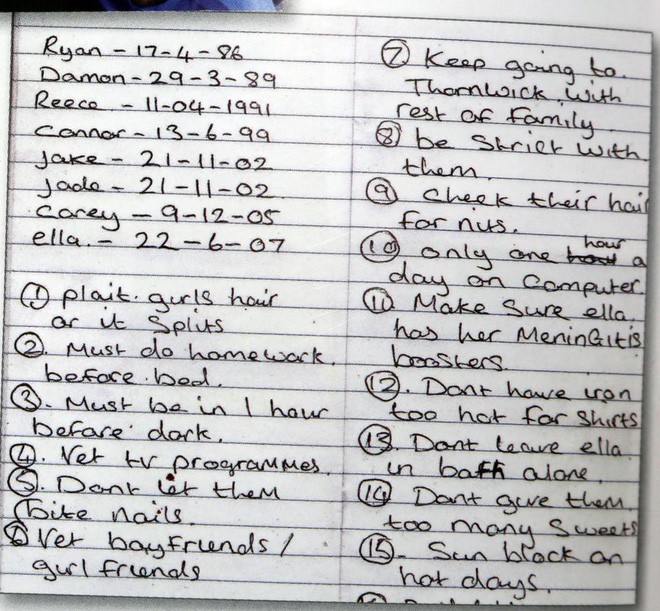 Ryan - 17-4-86
Damon - 29-3-89
Reece - 11-04-1991
Connor - 13-6-99
Jake - 21-11-02
Jade - 21-11-02
Corey - 9-12-05
ella. - 22-6-07
① plait. gurls hair
or it Splits
②. Must do homework.
before bed.
③. Must be in 1 hour
before dark.
④. Vet tv programmes.
⑤. Dont let them
bite nails.
⑥ Vet boyfriends /
gurl friends
⑦ Keep going to.
Thornwick with
rest of family
⑧ be Strict with
them.
⑨ Check their hair
for nits.
⑩ only one hour a
day on computer.
⑪ Make Sure ella.
has her MeninGitis
boosters.
⑫. Dont have iron
too hot for Shirts
⑬. Dont leave ella.
in bath alone.
⑭ Dont give them.
too many Sweets
⑮- Sun block on
hot days.